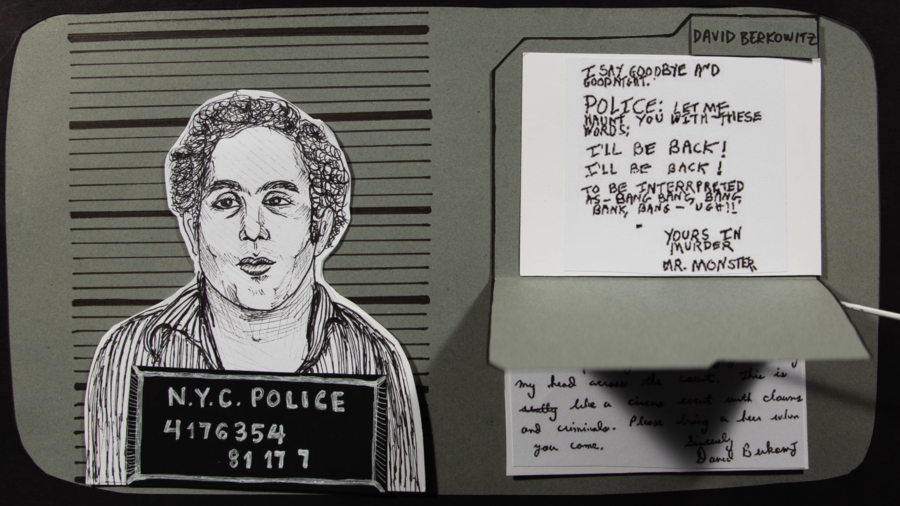 DAVID BERKOWITZ
I SAY GOODBYE AND
GOODNIGHT.
POLICE: LET ME
HAUNT YOU WITH THESE
WORDS;
I'LL BE BACK!
I'LL BE BACK!
TO BE INTERRPRETED
AS - BANG BANG, BANG,
BANK, BANG - UGH!!
YOURS IN
MURDER
MR. MONSTER
N.Y.C. POLICE
4176354
81177
my head across the court. This is
like a circus event with clowns
and criminals. Please bring a beer when
you come. Sincerely
David Berkowitz